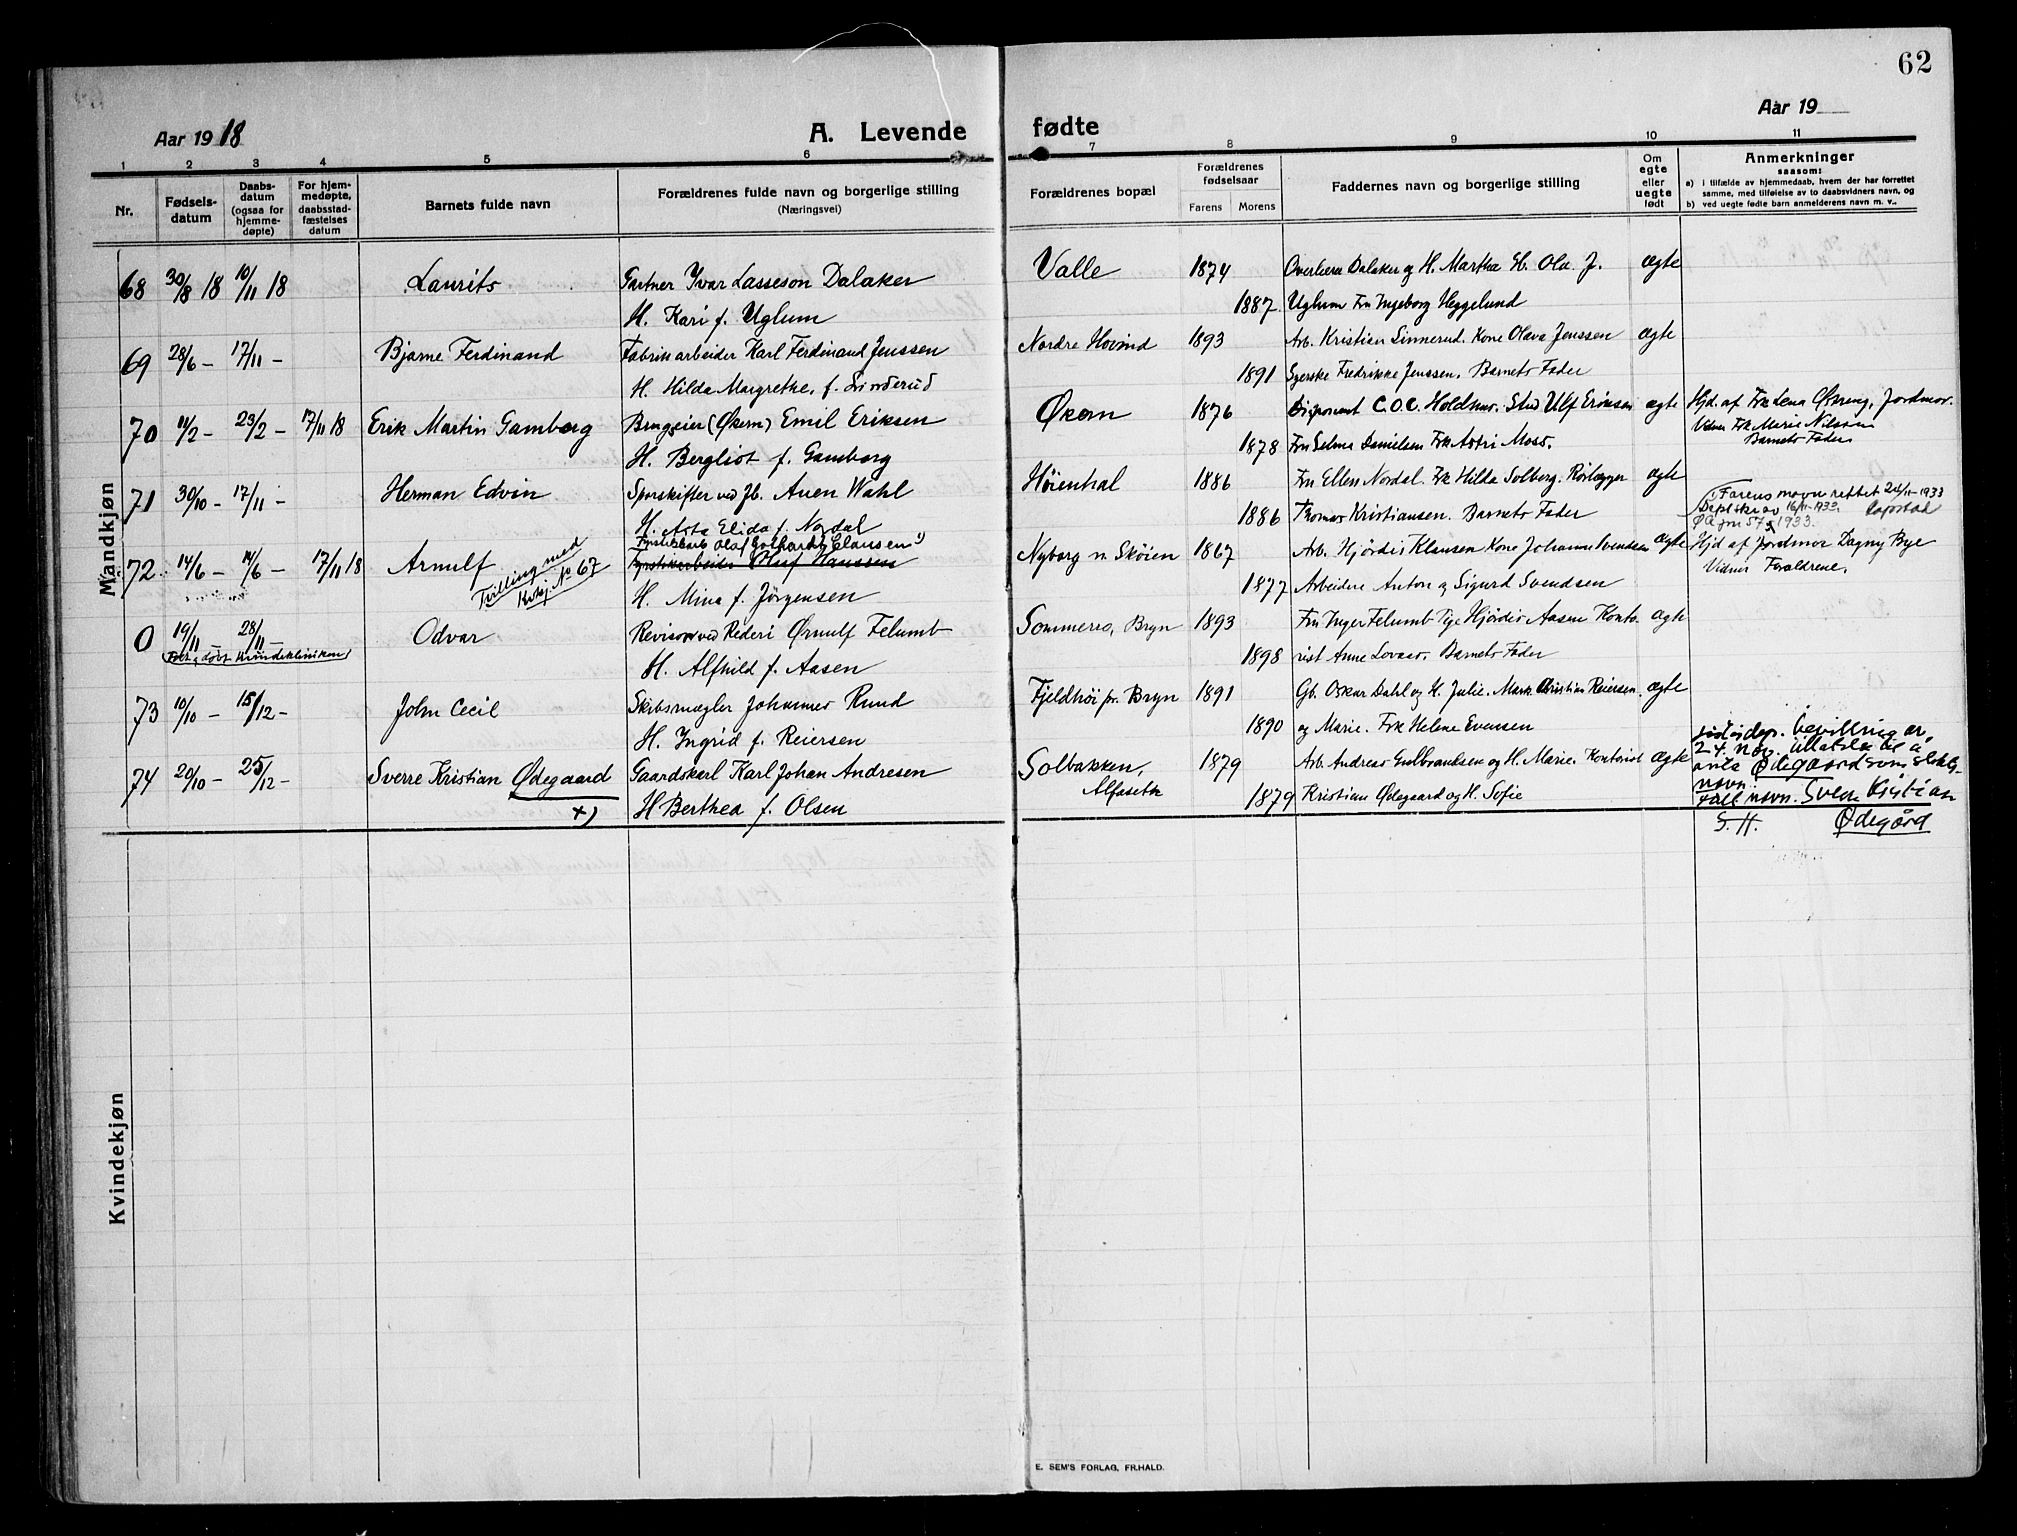 62
Aar 1918
A. Levende fødte
Aar 19
1 2 3 4 5 6 7 8 9 10 11
Nr.
Fødsels-
datum
Daabs-
datum
(ogsaa for
hjemme-
døpte)
For hjem-
medøpte,
daabsstad-
fæstelses
datum
Barnets fulde navn
Forældrenes fulde navn og borgerlige stilling
(Næringsvei)
Forældrenes bopæl
Forældrenes
fødselsaar
Farens Morens
Faddernes navn og borgerlige stilling
Om
egte
eller
uegte
født
Anmerkninger
saasom:
a) i tilfælde av hjemmedaab, hvem der har forrettet
samme, med tilføielse av to daabsvidners navn, og
b) ved uegte fødte barn anmelderens navn m. v..
Mandkjøn
68 30/8 18 10/11 18 Laurits Gartner Ivar Lasseson Dalaker Valle 1874 Overlærer Dalaker og H. Martha Ola J. ægte
H. Kari f. Uglum 1887 Uglum Fru Ingeborg Heggelund
69 28/6 – 17/11 – Bjarne Ferdinand Fabrikarbeider Karl Ferdinand Jenssen Nordre Hovind 1893 Arb. Kristian Linnerud. Kone Olava Jenssen ægte
H. Hilda Margrethe, f. Linderud 1891 Syerske Fredrikke Jenssen. Barnets Fader
70 11/2 – 23/2 – 17/11 18 Erik Martin Gamborg Brugseier (Økern) Emil Eriksen Økern 1876 Disponent C.O.C. Holdhus. Stud Ulf Eriksen ægte Hjd. af Frk Lena Økreng, Jordmor.
H. Bergliot f. Gamborg 1878 Fru Selma Danielsen Frk Astri Moss. Vidner Frk Marie Nilssen
Barnets Fader
71 30/10 – 17/11 – Herman Edvin Sporskifter ved Jb. Auen Wahl Høienhal 1886 Fru Ellen Nordal. Frk Hilda Solberg. Rørlægger ægte
H. Asta Elida f. Nordal 1886 Thomas Kristiansen. Barnets Fader
1) Farens navn rettet 24/11-1933
Dep.skr av 16/11-1933
1933.
72 14/6 – 14/6 – 17/11 18 Arnulf Fyrstikarb Olaf Gothardt Clausen 1) Nyborg n Skøien 1867 Arb. Hjørdis Klausen Kone Johanne Svendsen ægte Hjd af Jordmor Dagny Bye
Tvilling med
Kvkj. No 67
Fyrstikarbeider Oluf Hanssen
H. Mina f. Jørgensen 1877 Arbeidere Anton og Sigurd Svendsen Vidner Forældrene.
0 19/11 28/11 – Odvar Revisor ved Rederi Ørnulf Felumb Sommerro, Bryn 1893 Fru Inger Felumb Pige Hjørdis Aasen Konto- ægte
Født og døbt Kvindeklinikken H. Alfhild f. Aasen 1898 rist Anne Lovaas. Barnets Fader
73 10/10 – 15/12 – John Cecil Skibsmægler Johannes Ruud Fjeldhøi pr. Bryn 1891 Gb. Oskar Dahl og H. Julie. Mark Christian Reiersen ægte
H. Ingrid f. Reiersen 1890 og Marie. Frk Helene Evensen
74 20/10 – 25/12 – Sverre Kristian Ødegaard Gaardskarl Karl Johan Andresen Solbakken, 1879 Arb. Andreas Gulbrandsen og H. Marie. Kontorist ægte
x) H Berthea f. Olsen Alfaseth 1879 Kristian Ødegaard og H. Sofie
Just.dep. bevilling av
24. nov. tillatelse til å
anta Ødegaard som slekts-
navn.
Fullt navn. Sverre Kristian
S. H. Ødegård
Kvindekjøn
E. SEM'S FORLAG, FR.HALD.